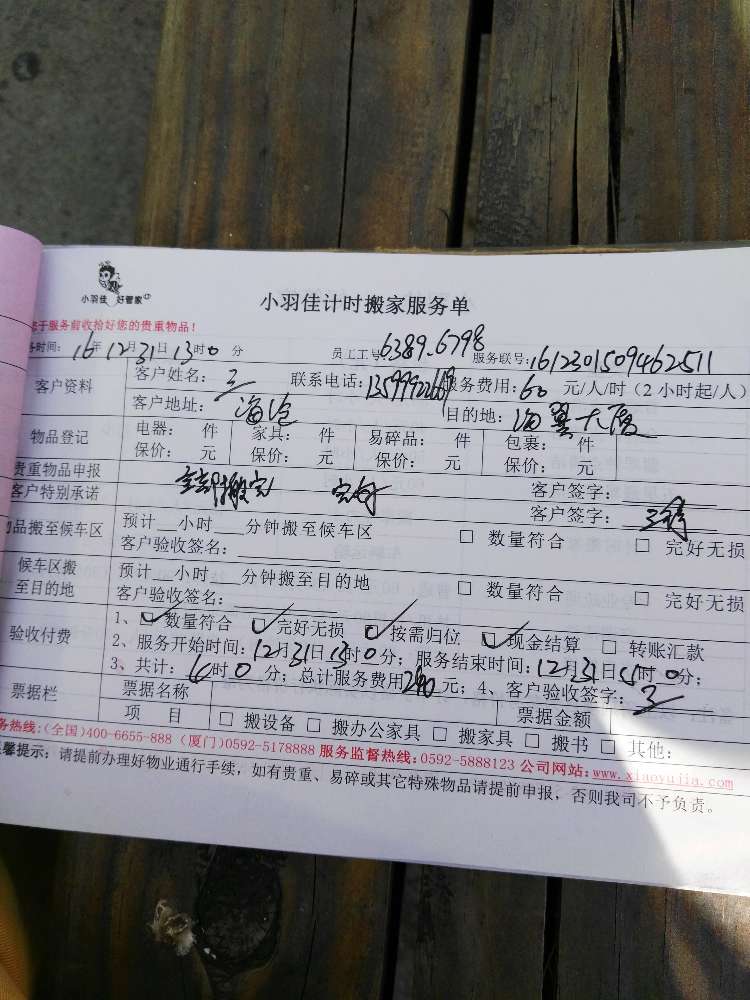 小羽佳 好管家
小羽佳计时搬家服务单
于服务前收拾好您的贵重物品！
务时间：16年12月31日13时0分 员工工号6389.6798 服务联号：1612301509462511
客户资料 客户姓名： 联系电话： 服务费用：60元/人/时（2小时起/人）
客户地址：海沧 目的地：海翼大厦
物品登记 电器： 件 家具： 件 易碎品： 件 包裹： 件
保价： 元 保价： 元 保价： 元 保价： 元
贵重物品申报 客户签字：
客户特别承诺 搬完 完好 客户签字：
物品搬至候车区 预计__小时___分钟搬至候车区 □ 数量符合 □ 完好无损
客户验收签名：
候车区搬至目的地 预计__小时___分钟搬至目的地 □ 数量符合 □ 完好无损
客户验收签名：
验收付费 1、☑数量符合 ☑完好无损 ☑按需归位 ☑现金结算 □ 转账汇款
2、服务开始时间：12月31日13时0分；服务结束时间：12月31日 时0分；
3、共计： 时0分；总计服务费用240元；4、客户验收签字：
票据栏 票据名称 票据金额
项 目 □ 搬设备 □ 搬办公家具 □ 搬家具 □ 搬书 □ 其他：
务热线：（全国）400-6655-888（厦门）0592-5178888 服务监督热线：0592-5888123 公司网站：www.xiaoyujia.com
温馨提示：请提前办理好物业通行手续，如有贵重、易碎或其它特殊物品请提前申报，否则我司不予负责。